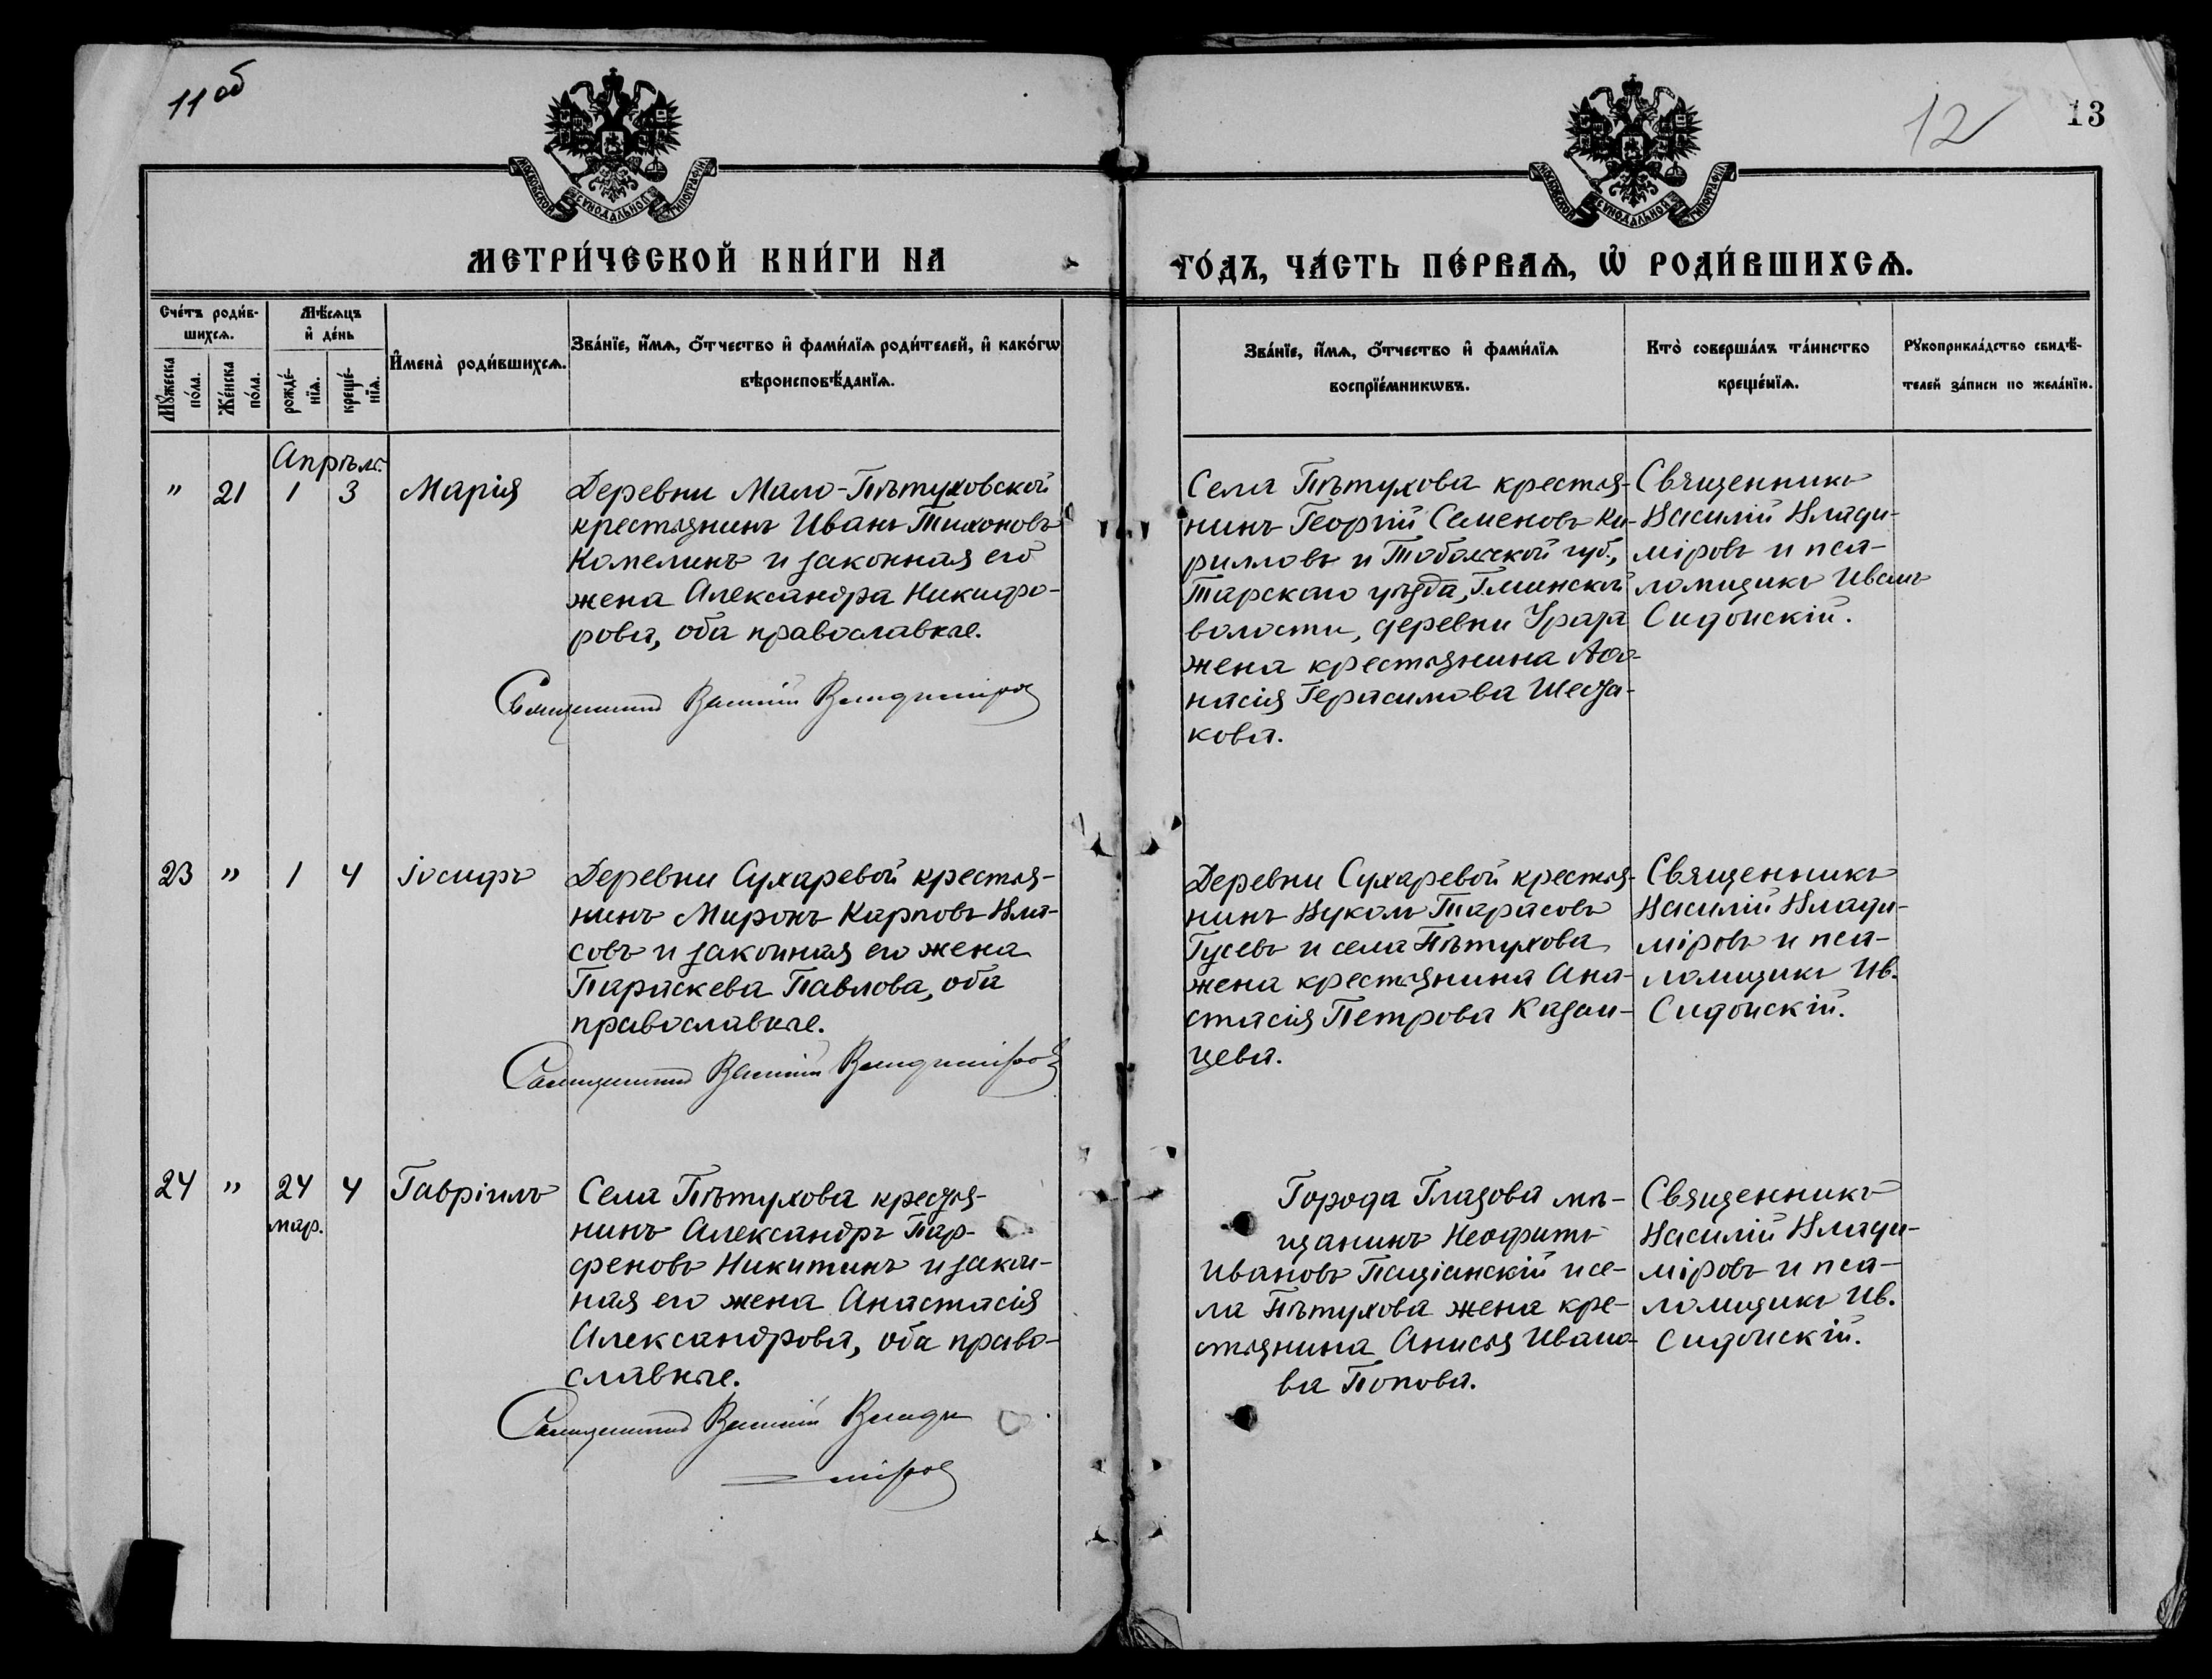 11 об
12
13
МОСКОВСКОЙ СѴНОДАЛЬНОЙ ТИПОГРАФІИ
МОСКОВСКОЙ СѴНОДАЛЬНОЙ ТИПОГРАФІИ
МЕТРИ́ЧЕСКОЙ КНИ́ГИ НА
ГО́ДЪ, ЧА́СТЬ ПЕ́РВАѦ, Ѡ҆ РОДИ́ВШИХСѦ.
Сче́тъ роди́в-
шихсѧ.
Мꙋ́жеска
по́ла.
Же́нска
по́ла.
Мѣ́сѧцъ
и҆ де́нь
рожде́-
нїѧ.
креще́-
нїѧ.
И҆мена̀ роди́вшихсѧ.
Зва́нїе, и҆́мѧ, ѻ҆́тчество и҆ фами́лїѧ роди́телей, и҆ како́гѡ
вѣроисповѣ́данїѧ.
Зва́нїе, и҆́мѧ, ѻ҆́тчество и҆ фами́лїѧ
воспрїе́мникѡвъ.
Кто̀ соверша́лъ та́инство
креще́нїѧ.
Рꙋкоприкла́дство свидѣ́-
телей за́писи по жела́нїю.
Апрѣль.
" 21 1 3 Марія
Деревни Мало-Пѣтуховской
крестьянинъ Иванъ Тихоновъ
Камелинъ и законная его
жена Александра Никифо-
рова, оба православные.
Священникъ Василій Владиміровъ
Села Пѣтухова крестья-
нинъ Георгій Семеновъ Ки-
рилловъ и Тобольской губ.,
Тарскаго уѣзда,
волости, деревни Ураза
жена крестьянина Афа-
насія Герасимова Шеста-
кова.
Священникъ
Василій Влади-
міровъ и пса-
ломщикъ Иванъ
Сидонскій.
23 " 1 4 Іосифъ
Деревни Сухаревой крестья-
нинъ Миронъ Карповъ Вла-
совъ и законная его жена
Параскева Павлова, оба
православные.
Священникъ Василій Владиміровъ
Деревни Сухаревой крестья-
нинъ Вуколъ Тарасовъ
Гусевъ и села Пѣтухова
жена крестьянина Ана-
стасія Петрова Казан-
цева.
Священникъ
Василій Влади-
міровъ и пса-
ломщикъ Ив.
Сидонскій.
24 " 24 4 Гавріилъ
мар.
Села Пѣтухова крестья-
нинъ Александръ Пар-
феновъ Никитинъ и закон-
ная его жена Анастасія
Александрова, оба право-
славные.
Священникъ Василій Влади
міровъ
Города Глазова мѣ-
щанинъ Неофитъ
Ивановъ и се-
ла Пѣтухова жена кре-
стьянина Анисья Ивано-
ва Попова.
Священникъ
Василій Влади-
міровъ и пса-
ломщикъ Ив.
Сидонскій.